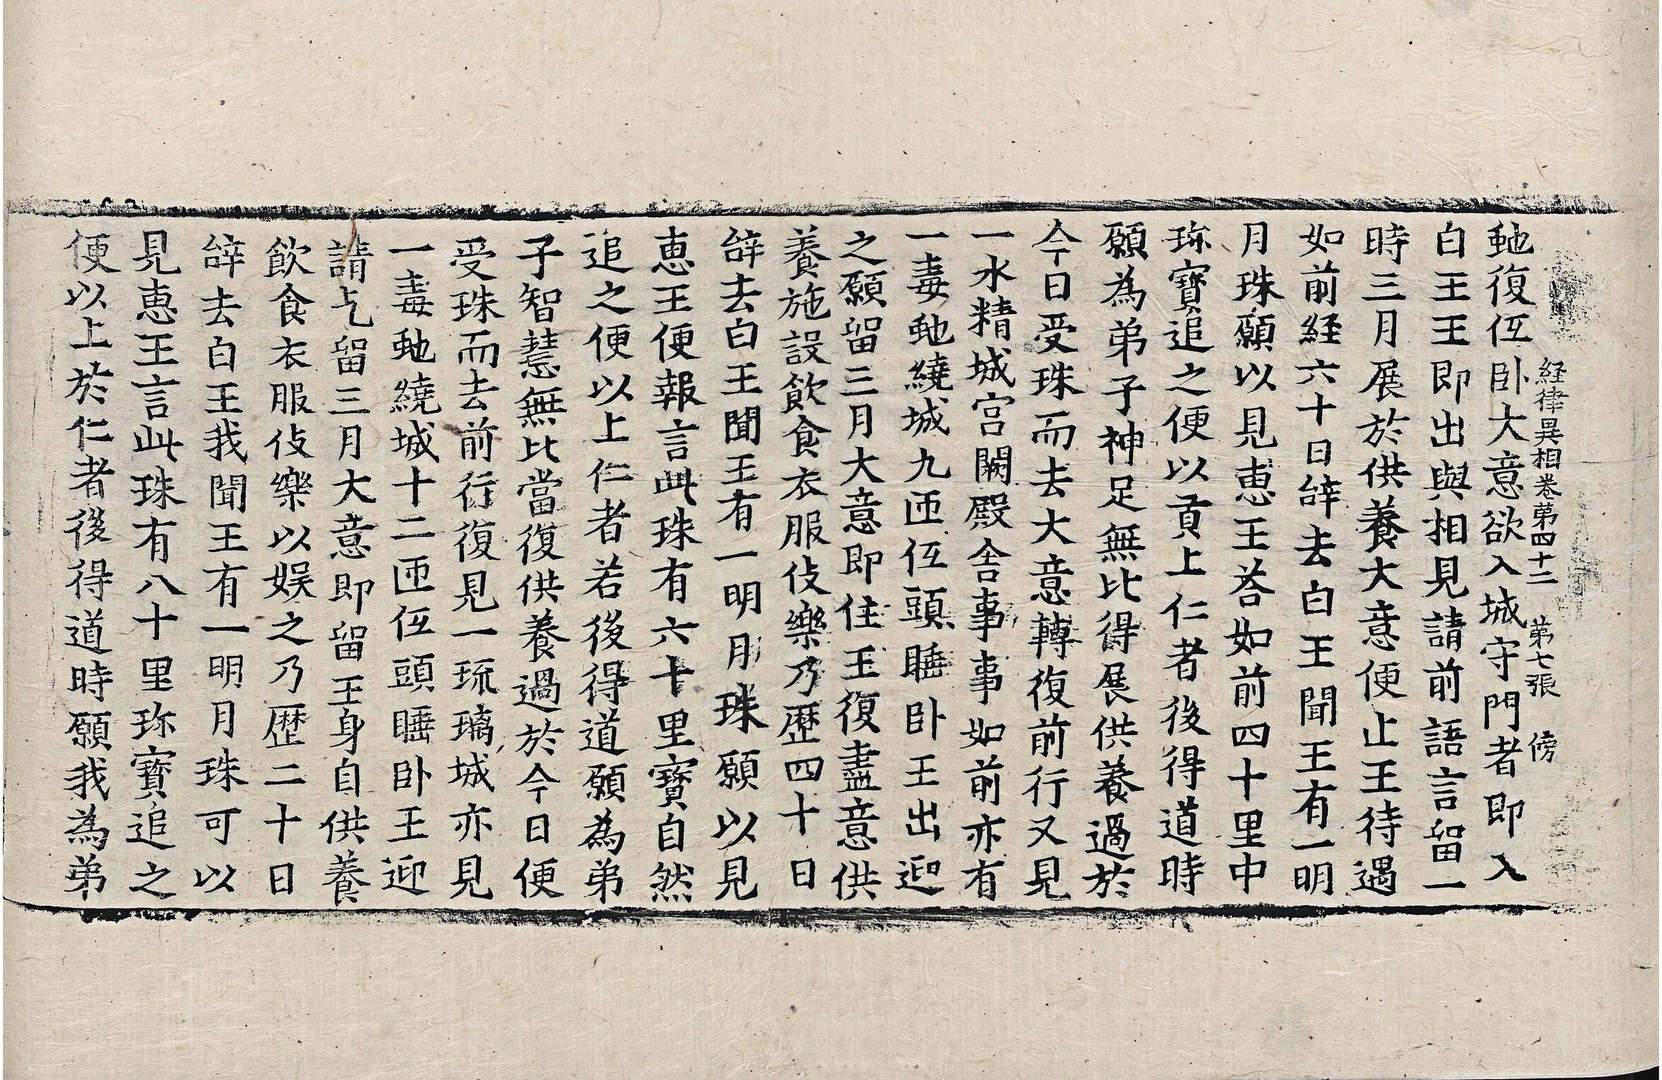 経律異相卷第四十二 第七張 傍
虵復伍卧大意欲入城守門者即入
白王王即出與相見請前語言留一
時三月展於供養大意便止王待遇
如前経六十日辝去白王聞王有一明
月珠願以見恵王荅如前四十里中
珎寶追之便以貢上仁者後得道時
願為弟子神足無比得展供養過於
今日受珠而去大意轉復前行又見
一水精城宮闕殿舎事事如前亦有
一毒虵繞城九迊伍頭睡卧王出迎
之願留三月大意即住王復盡意供
養施設飲食衣服伎樂乃歴四十日
辝去白王聞王有一明月珠願以見
恵王便報言此珠有六十里寶自然
追之便以上仁者若後得道願為弟
子智慧無比當復供養過於今日便
受珠而去前行復見一琉璃城亦見
一毒虵繞城十二迊伍頭睡卧王迎
請乞留三月大意即留王身自供養
飲食衣服伎樂以娱之乃歴二十日
辝去白王我聞王有一明月珠可以
見恵王言此珠有八十里珎寶追之
便以上於仁者後得道時願我為弟